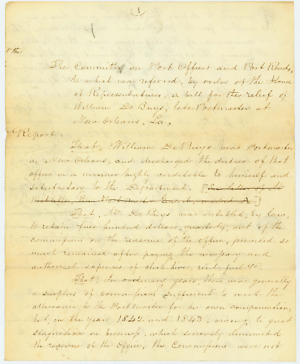 The Committee on Post Offices and Post Roads,
to which was referred, by order of the House
of Representatives, a bill for the relief of
William De Buys, late Postmaster at
New Orleans, La.
Report:
That, William De Buys was Postmaster
at New Orleans, and discharged the duties of that
office in a manner highly creditable to himself and
satisfactory to the Department.
That, Mr. De Buys was entitled, by law,
to retain five hundred dollars, quarterly, out of the
commissions on the revenue of the office, provided so
much remained after paying the necessary and
authorized expenses of clerk hire,
That, in ordinary years, there was generally
a surplus of commissions sufficient to meet the
allowance to the Postmaster for his own compensation,
but, in the years 1842 and 1843, owing to great
stagnation in business, which seriously diminished
the revenue of the office, the commissions were not